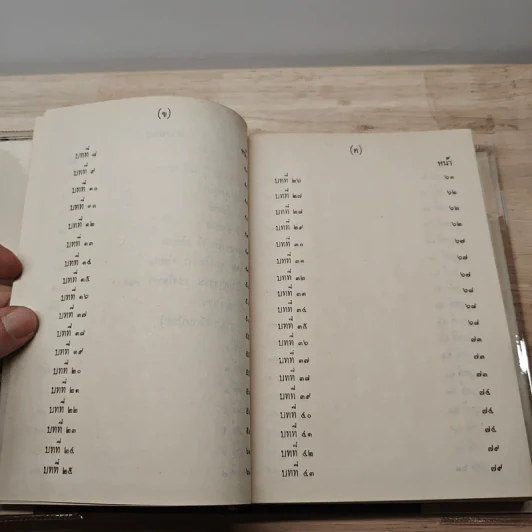 (ข)
บทที่ ๘
บทที่ ๙
บทที่ ๑๐
บทที่ ๑๑
บทที่ ๑๒
บทที่ ๑๓
บทที่ ๑๔
บทที่ ๑๕
บทที่ ๑๖
บทที่ ๑๗
บทที่ ๑๘
บทที่ ๑๙
บทที่ ๒๐
บทที่ ๒๑
บทที่ ๒๒
บทที่ ๒๓
บทที่ ๒๔
บทที่ ๒๕
(ค)
หน้า
บทที่ ๒๖ ๖๑
บทที่ ๒๗ ๖๒
บทที่ ๒๘ ๖๒
บทที่ ๒๙ ๖๒
บทที่ ๓๐
บทที่ ๓๑
บทที่ ๓๒
บทที่ ๓๓
บทที่ ๓๔
บทที่ ๓๕
บทที่ ๓๖ ๗๑
บทที่ ๓๗ ๗๑
บทที่ ๓๘ ๗๑
บทที่ ๓๙
บทที่ ๔๐
บทที่ ๔๑
บทที่ ๔๒ ๗๙
บทที่ ๔๓ ๗๙